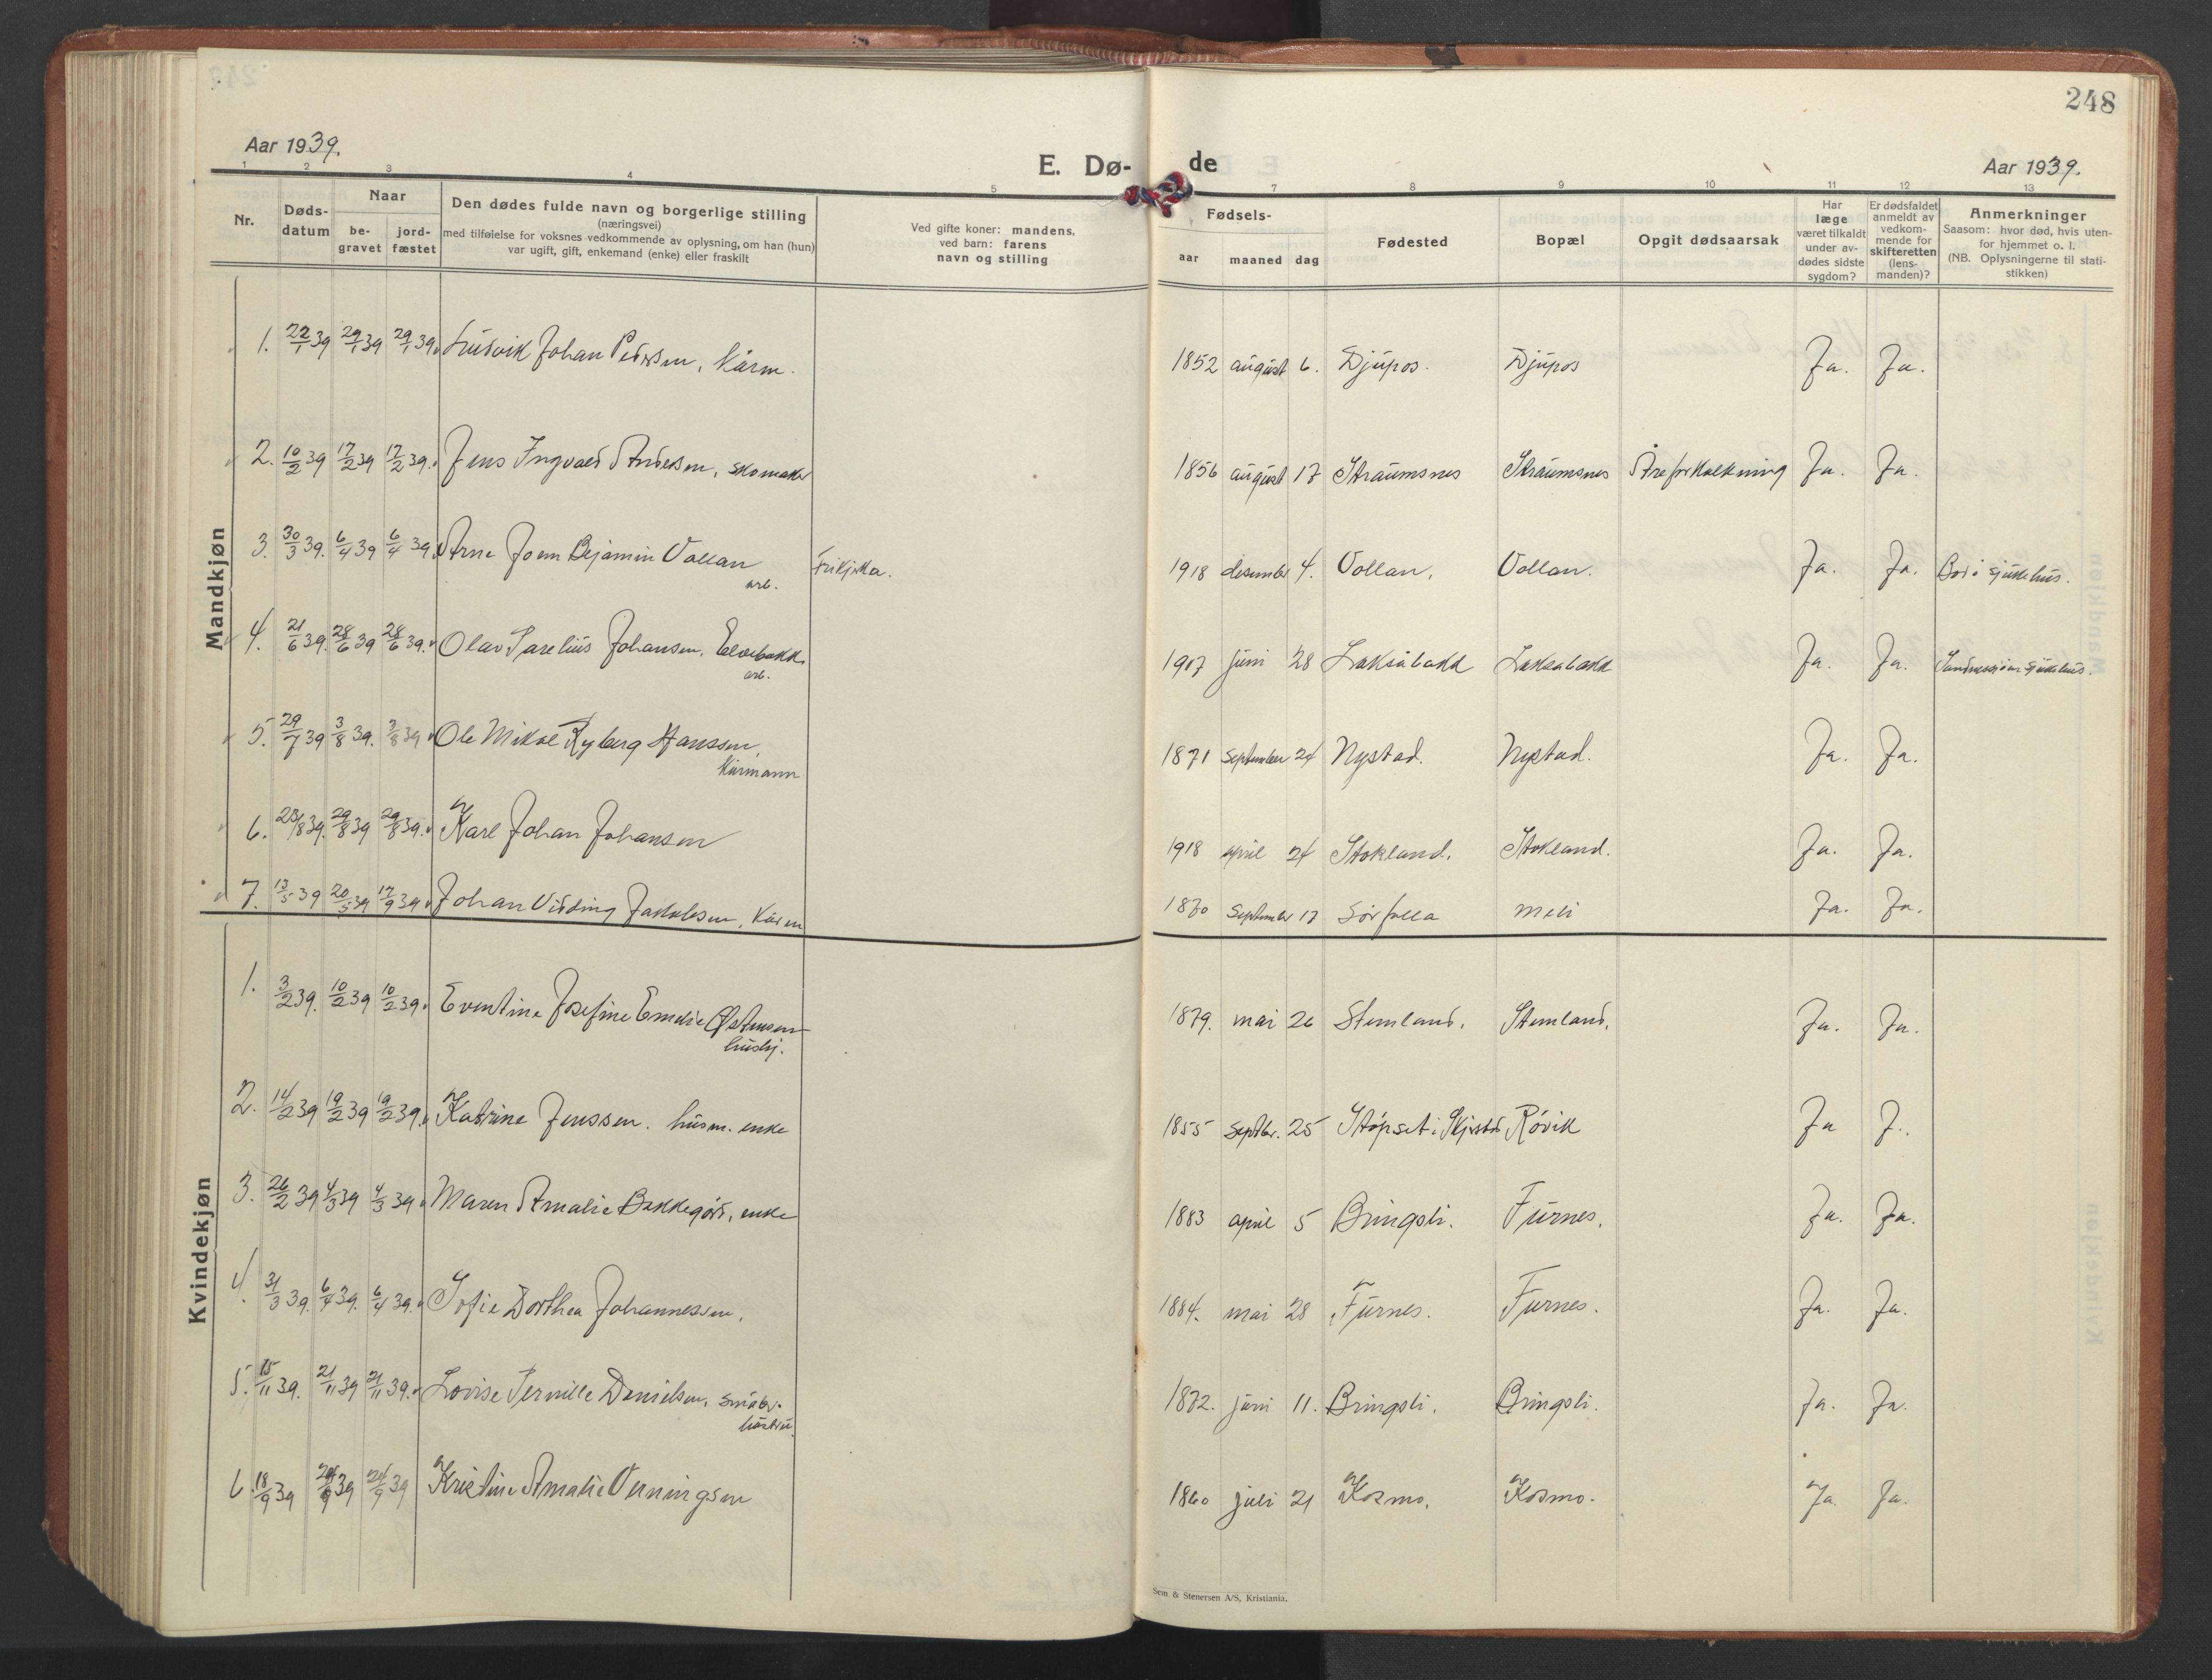 248
Aar 1939.
E. Dø-
de
Aar 1939.
1 2 3 4 5 7 8 9 10 11 12 13
Nr.
Døds-
datum
Naar
be-
gravet
jord-
fæstet
Den dødes fulde navn og borgerlige stilling
(næringsvei)
med tilføielse for voksnes vedkommende av oplysning, om han (hun)
var ugift, gift, enkemand (enke) eller fraskilt
Ved gifte koner: mandens,
ved barn: farens
navn og stilling
Fødsels-
aar maaned dag
Fødested
Bopæl
Opgit dødsaarsak
Har
læge
været tilkaldt
under av-
dødes sidste
sygdom?
Er dødsfaldet
anmeldt av
vedkom-
mende for
skifteretten
(lens-
manden)?
Anmerkninger
Saasom: hvor død, hvis uten-
for hjemmet o. l.
(NB. Oplysningerne til stati-
stikken)
Mandkjøn
1. 22/1 39 29/1 39 29/1 39 Ludvik Johan Pedersen, kårm. 1852 august 6. Djupos. Djupos Ja. Ja.
2. 10/2 39 17/2 39 17/2 39. Jens Ingvald Andersen, skomaker 1856 august 17 Straumsnes Straumsnes Åreforkalkning Ja. Ja.
3. 30/3 39. 6/4 39 6/4 39 Arne Joem Bejamin Vollan Frikjirka. 1918 desember 4. Vollan. Vollan. Ja. Ja. Bodø sjukehus.
arb.
4. 21/6 39. 28/6 39 28/6 39. Olav Parelius Johansen, Elvebakk 1907 juni 28 Laksåbakk Laksabakk Ja. Ja. sjukehus.
arb.
5. 29/7 39 3/8 39. 3/8 39 Ole Mikal Ryberg Hanssen, 1871 september 24 Nystad. Nystad. Ja. Ja.
kårmann
6. 23/8 39. 29/8 39 29/8 39. Karl Johan Johansen 1918 april 24 Stokland. Stokland. Ja. Ja.
7. 13/5 39 20/5 39 17/9 39 Johan Vidding Jakobsen, kårm 1870 September 17 Sørfolla Meli Ja. Ja.
Kvindekjøn
1. 3/2 39. 10/2 39 10/2 39. Eventine Josefine Emelie Østensen 1879. mai 26 Stemland. Stemland. Ja. Ja.
hushj.
2. 14/2 39 19/2 39 19/2 39. Katrine Jenssen. husm. enke 1855 septbr. 25 Støpset i Skjerstad Røvik Ja J..
3. 26/2 39 4/3 39 4/3 39 Maren Amalie Bakkegård, enke 1883 april 5 Bringsli. Furnes. Ja. Ja.
4. 31/3 39. 6/4 39. 6/4 39. Sofie Dorthea Johannessen. 1884. mai 28 Furnes. Furnes. Ja. Ja.
5. 15/11 39. 21/11 39 21/11 39. Lovise Pernille Danielsen, småbr. 1872. juni 11. Bringsli. Bringsli. Ja. Ja.
hustru.
6. 18/9 39 24/9 39 24/9 39 Kristine Amalie Venningsen 1860 juli 21 Kosmo. Kosmo. Ja. Ja.
Sem & Stenersen A/S, Kristiania.